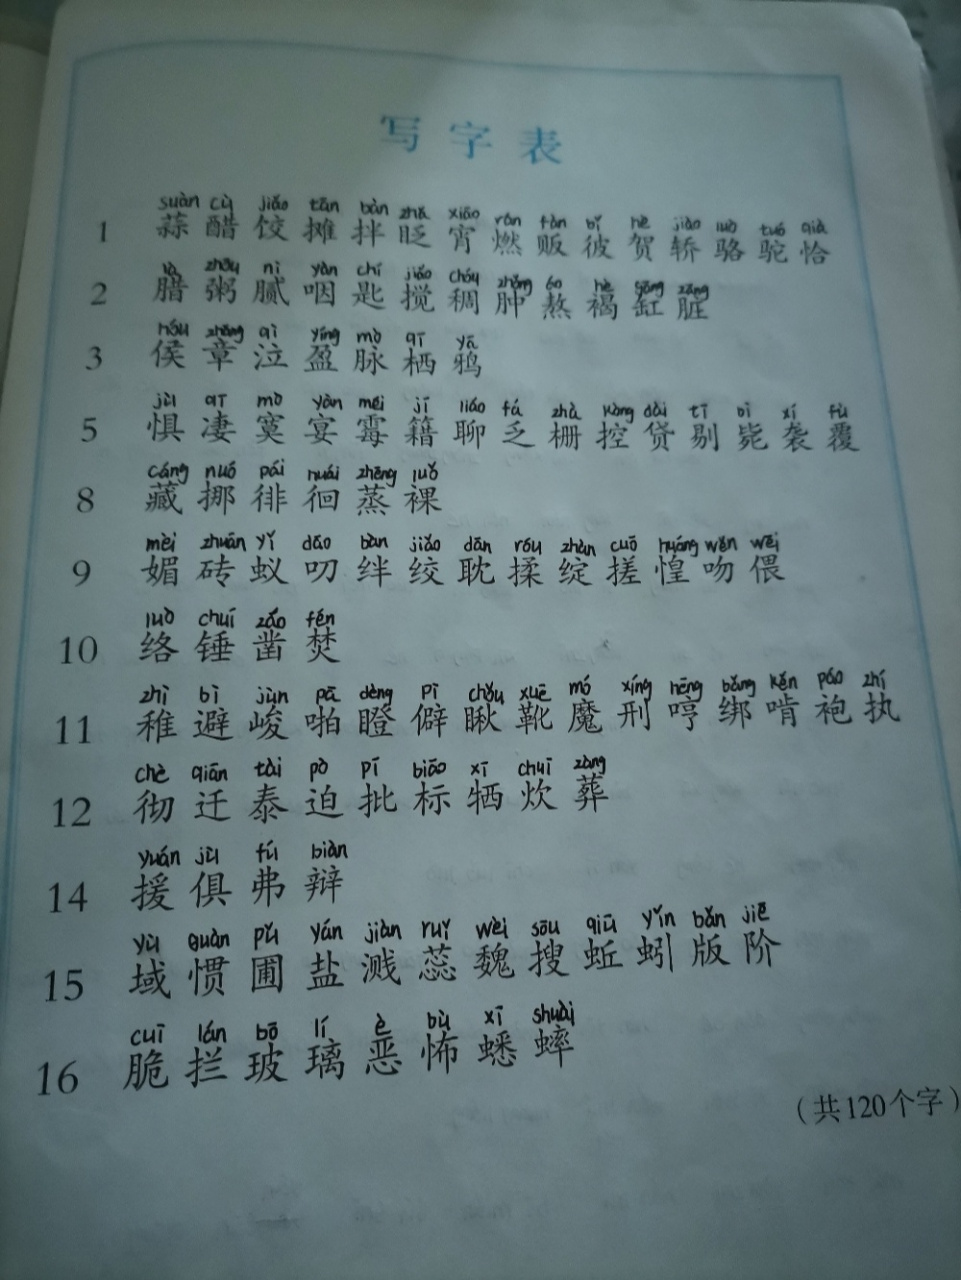 写字表
suàn cù jiǎo tān bàn zhǎ xiāo rán fàn bǐ hè jiào luò tuó qià
1 蒜 醋 饺 摊 拌 眨 宵 燃 贩 彼 贺 轿 骆 驼 恰
là zhōu nì yàn chí jiǎo chóu zhǒng áo hè gāng zāng
2 腊 粥 腻 咽 匙 搅 稠 肿 熬 褐 缸 脏
hóu zhāng qì yíng mò qī yā
3 侯 章 泣 盈 脉 栖 鸦
jù qī mò yàn méi jí liáo fá zhà kòng dài tī bì xí fù
5 惧 凄 寞 宴 霉 籍 聊 乏 栅 控 贷 剔 毙 袭 覆
cáng nuó pái huái zhēng luǒ
8 藏 挪 徘 徊 蒸 裸
mèi zhuān yǐ dāo bàn jiǎo dān róu zhàn cuō huáng wěn wēi
9 媚 砖 蚁 叨 绊 绞 耽 揉 绽 搓 惶 吻 偎
luò chuí záo fén
10 络 锤 凿 焚
zhì bì jùn pā dèng pì chǒu xuē mó xíng hēng bǎng kěn páo zhí
11 稚 避 峻 啪 瞪 僻 瞅 靴 魔 刑 哼 绑 啃 袍 执
chè qiān tài pò pī biāo xī chuī zàng
12 彻 迁 泰 迫 批 标 牺 炊 葬
yuán jù fú biàn
14 援 俱 弗 辩
yù quàn pǔ yán jiàn ruǐ wèi sōu qiū yǐn bǎn jiē
15 域 惯 圃 盐 溅 蕊 魏 搜 蚯 蚓 版 阶
cuī lán bō lí è bù xī shuài
16 脆 拦 玻 璃 恶 怖 蟋 蟀
（共120个字）